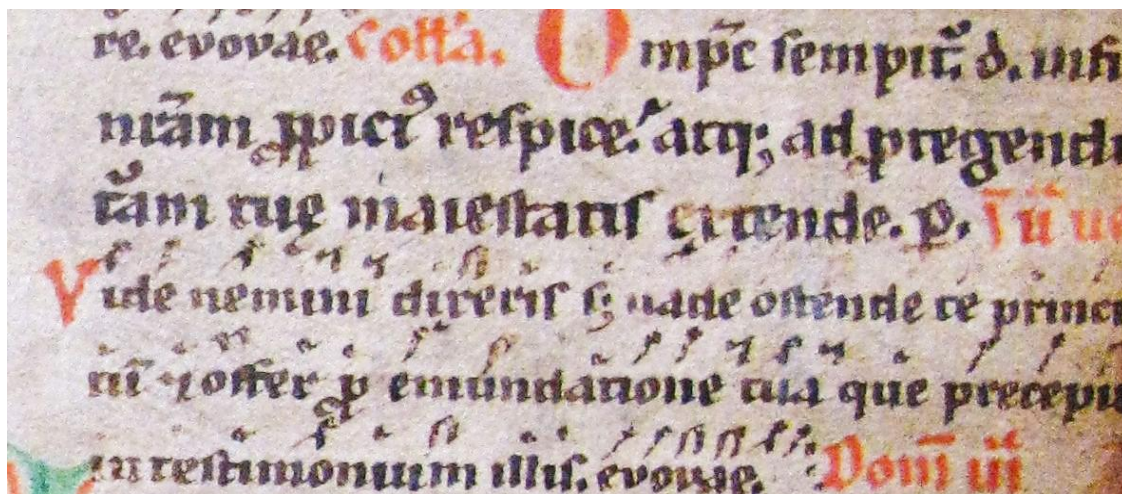 re. evovae. Coll̄a. Omp̄s sempit̄. d̄. infi
mitatē nr̄am ꝓpici⁹ respice. atq; ad ꝓtegendū
dext̄am tuę maiestatis extende. p.
Vide nemini dixeris s; uade ostende te princi
tū ⁊ offer ꝓ emundatione tua que precepit
in testimonium illis. evovae. Dom̄ iii